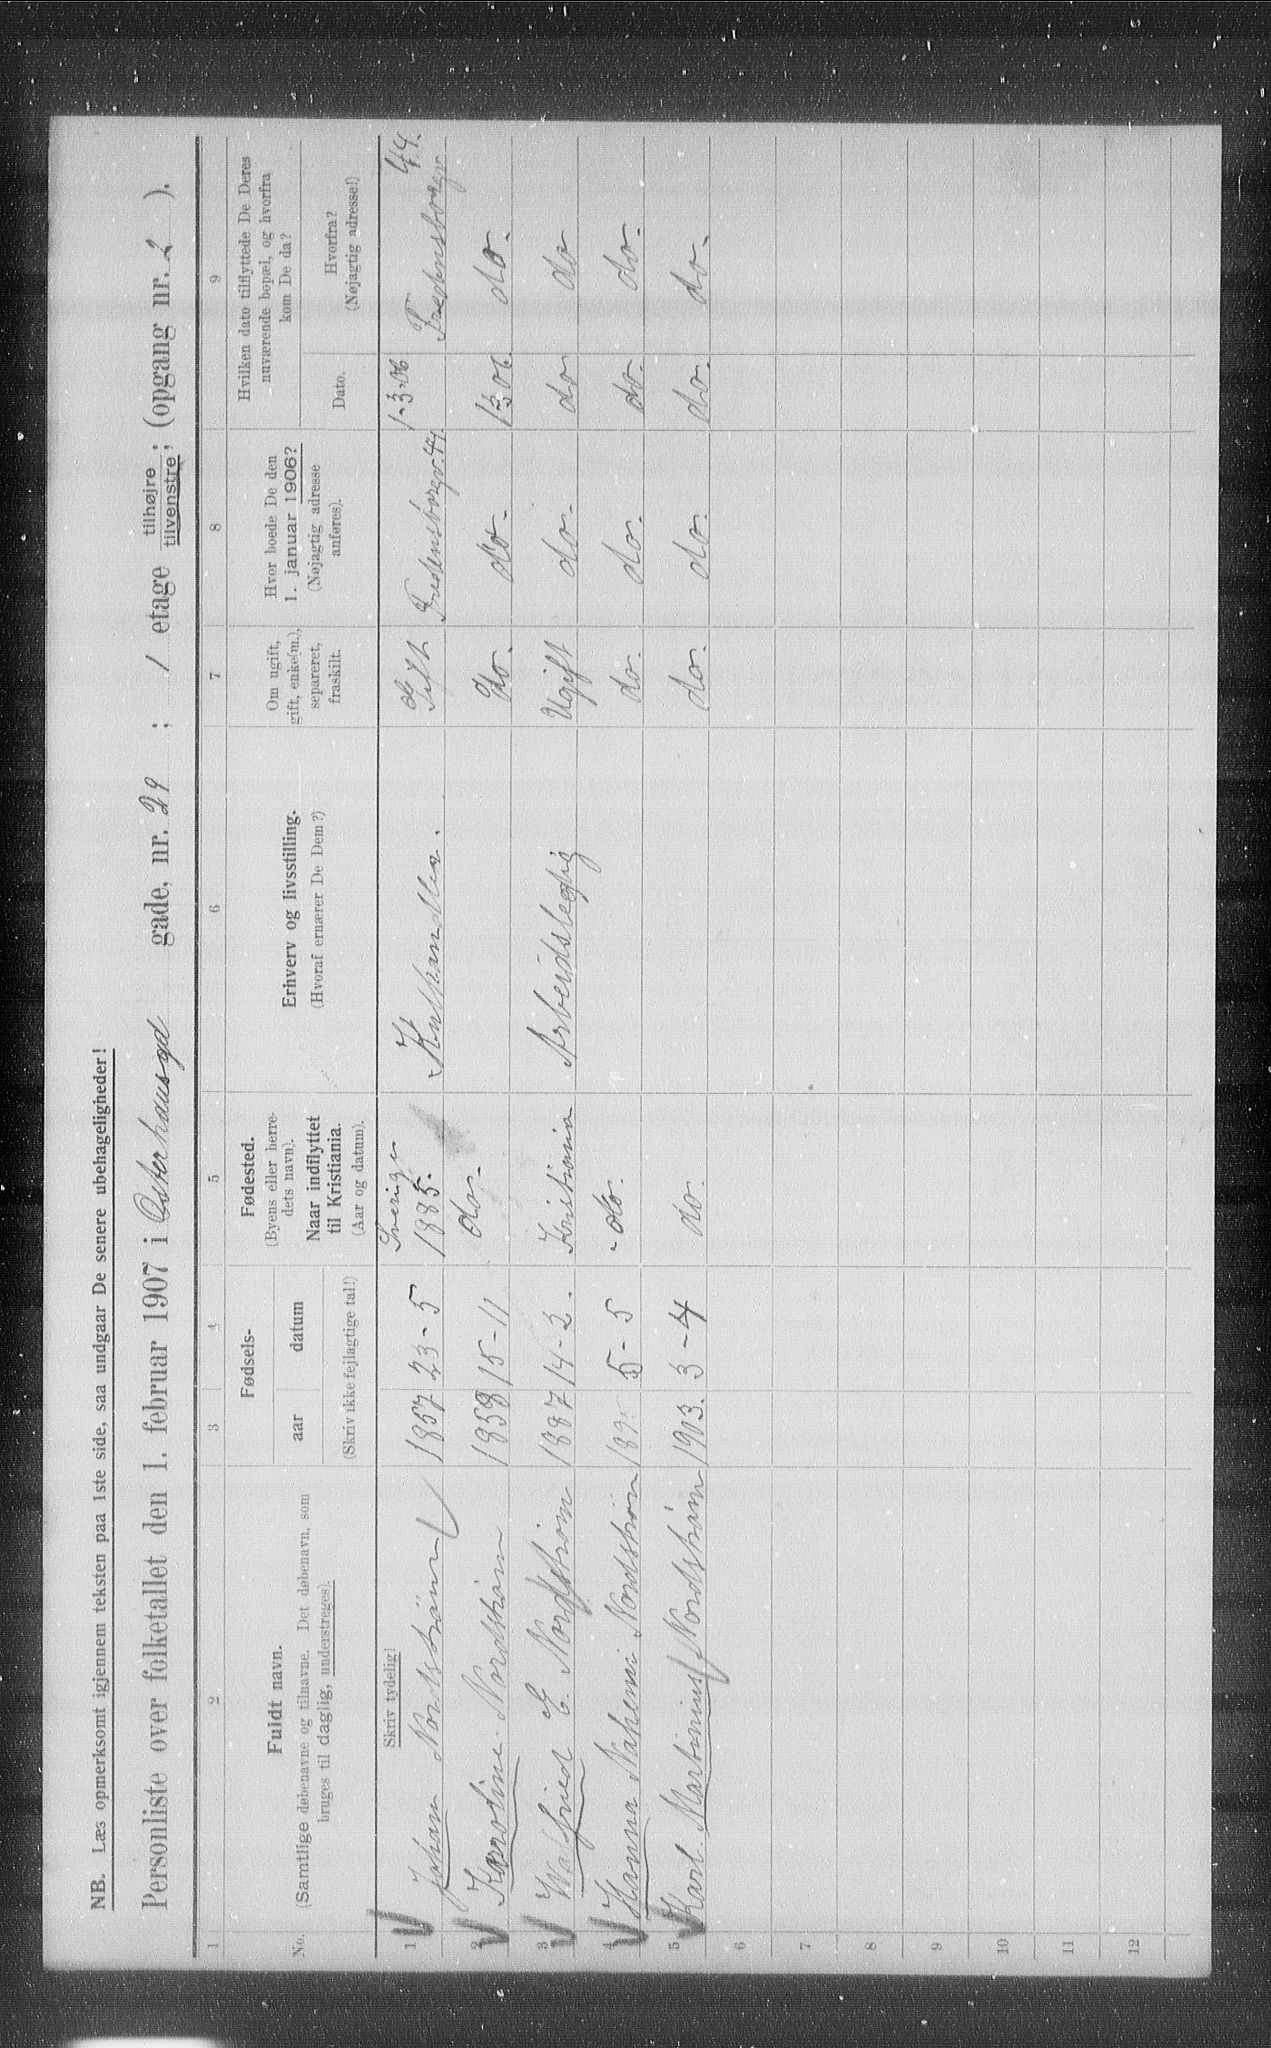 NB. Læs opmerksomt igjennem teksten paa 1ste side, saa undgaar De senere ubehageligheder!
Personliste over folketallet den 1. februar 1907 i Osterhausgd gade, nr. 29 ; 1 etage tilhøjre tilvenstre ; (opgang nr. 2 ).
1 2 3 4 5 6 7 8 9
No.
Fuldt navn.
(Samtlige døbenavne og tilnavne. Det døbenavn, som
bruges til daglig, understreges).
Fødsels-
aar datum
(Skriv ikke fejlagtige tal!)
Fødested.
(Byens eller herre-
dets navn).
Naar indflyttet
til Kristiania.
(Aar og datum).
Erhverv og livsstilling.
(Hvoraf ernærer De Dem?)
Om ugift,
gift, enke(m.),
separeret,
fraskilt.
Hvor boede De den
1. januar 1906?
(Nøjagtig adresse
anføres).
Hvilken dato tilflyttede De Deres
nuværende bopæl, og hvorfra
kom De da?
Dato.
Hvorfra?
(Nøjagtig adresse!)
Skriv tydelig!
1 Johan Nordström 1857 23-5 Sverige 1885. Kulhandler. Gift Fredensborgv. 44. 1-3-06 Fredensborgv 44.
2 Karoline Nordström 1858 15-11 do. do. do. 1 3 06. do.
3 Walfried E. Nordström 1887 14-2. Kristiania Arbeidsledig Ugift do. do do
4 Hanna Nordström 5-5 -do. do. do. do. do.
5 Karl Martinius Nordström 1903. 3-4 do. do. do. do. do.
6
7
8
9
10
11
12